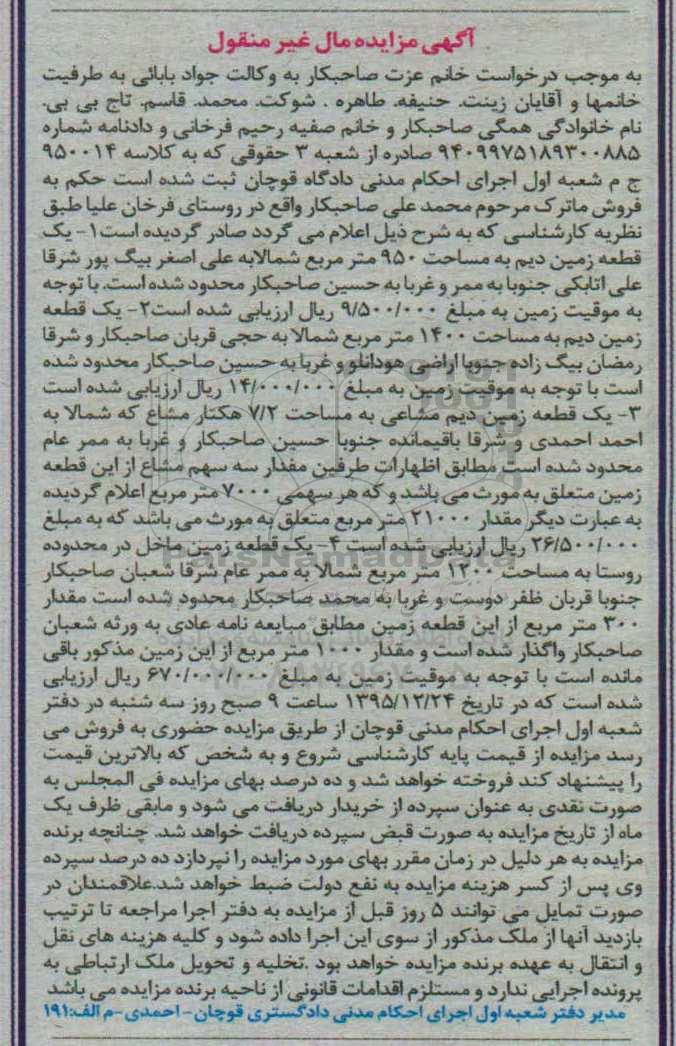 آگهی مزایده مال غیر منقول
به موجب درخواست خانم عزت صاحبکار به وکالت جواد بابائی به طرفیت
خانمها و آقایان زینت. حنیفه. طاهره . شوکت. محمد. قاسم. تاج بی بی.
نام خانوادگی همگی صاحبکار و خانم صفیه رحیم فرخانی و دادنامه شماره
۹۴۰۹۹۷۵۱۸۹۳۰۰۸۸۵ صادره از شعبه ۳ حقوقی که به کلاسه ۹۵۰۰۱۴
ج م شعبه اول اجرای احکام مدنی دادگاه قوچان ثبت شده است حکم به
فروش ماترک مرحوم محمد علی صاحبکار واقع در روستای فرخان علیا طبق
نظریه کارشناسی که به شرح ذیل اعلام می گردد صادر گردیده است۱- یک
قطعه زمین دیم به مساحت ۹۵۰ متر مربع شمالابه علی اصغر بیگ پور شرقا
علی اتابکی جنوبا به ممر و غربا به حسین صاحبکار محدود شده است. با توجه
به موقیت زمین به مبلغ ۹/۵۰۰/۰۰۰ ریال ارزیابی شده است۲- یک قطعه
زمین دیم به مساحت ۱۴۰۰ متر مربع شمالا به حجی قربان صاحبکار و شرقا
رمضان بیگ زاده جنوبا اراضی هودانلو و غربا به حسین صاحبکار محدود شده
است با توجه به موقعیت زمین به مبلغ ۱۴/۰۰۰/۰۰۰ ریال ارزیابی شده است
۳- یک قطعه زمین دیم مشاعی به مساحت ۷/۲ هکتار مشاع که شمالا به
احمد احمدی و شرقا باقیمانده جنوبا حسین صاحبکار و غربا به ممر عام
محدود شده است مطابق اظهارات طرفین مقدار سه سهم مشاع از این قطعه
زمین متعلق به مورث می باشد و که هر سهمی ۷۰۰۰ متر مربع اعلام گردیده
به عبارت دیگر مقدار ۲۱۰۰۰ متر مربع متعلق به مورث می باشد که به مبلغ
۲۶/۵۰۰/۰۰۰ ریال ارزیابی شده است ۴- یک قطعه زمین ماخل در محدوده
روستا به مساحت ۱۳۰۰ متر مربع شمالا به ممر عام شرقا شعبان صاحبکار
جنوبا قربان ظفر دوست و غربا به محمد صاحبکار محدود شده است مقدار
۳۰۰ متر مربع از این قطعه زمین مطابق مبایعه نامه عادی به ورثه شعبان
صاحبکار واگذار شده است و مقدار ۱۰۰۰ متر مربع از این زمین مذکور باقی
مانده است با توجه به موقیت زمین به مبلغ ۶۷۰/۰۰۰/۰۰۰ ریال ارزیابی
شده است که در تاریخ ۱۳۹۵/۱۲/۲۴ ساعت ۹ صبح روز سه شنبه در دفتر
شعبه اول اجرای احکام مدنی قوچان از طریق مزایده حضوری به فروش می
رسد مزایده از قیمت پایه کارشناسی شروع و به شخص که بالاترین قیمت
را پیشنهاد کند فروخته خواهد شد و ده درصد بهای مزایده فی المجلس به
صورت نقدی به عنوان سپرده از خریدار دریافت می شود و مابقی ظرف یک
ماه از تاریخ مزایده به صورت قبض سپرده دریافت خواهد شد. چنانچه برنده
مزایده به هر دلیل در زمان مقرر بهای مورد مزایده را نپردازد ده درصد سپرده
وی پس از کسر هزینه مزایده به نفع دولت ضبط خواهد شد.علاقمندان در
صورت تمایل می توانند ۵ روز قبل از مزایده به دفتر اجرا مراجعه تا ترتیب
بازدید آنها از ملک مذکور از سوی این اجرا داده شود و کلیه هزینه های نقل
و انتقال به عهده برنده مزایده خواهد بود .تخلیه و تحویل ملک ارتباطی به
پرونده اجرایی ندارد و مستلزم اقدامات قانونی از ناحیه برنده مزایده می باشد
مدیر دفتر شعبه اول اجرای احکام مدنی دادگستری قوچان - احمدی -م الف:۱۹۱
ParsNamadData